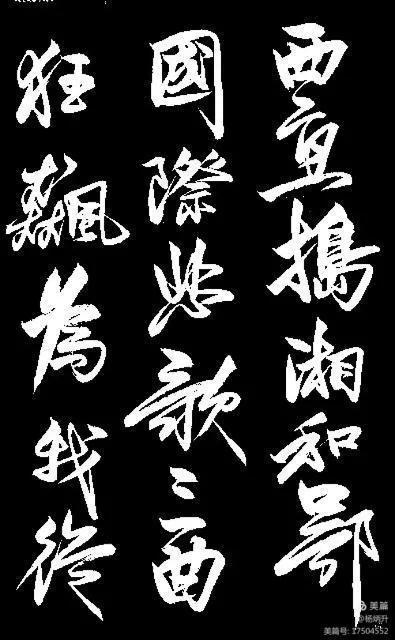 西直搗湘和鄂
國際悲歌〻一曲
狂飆為我從
美篇
@杨炳升
美篇号: 17504552